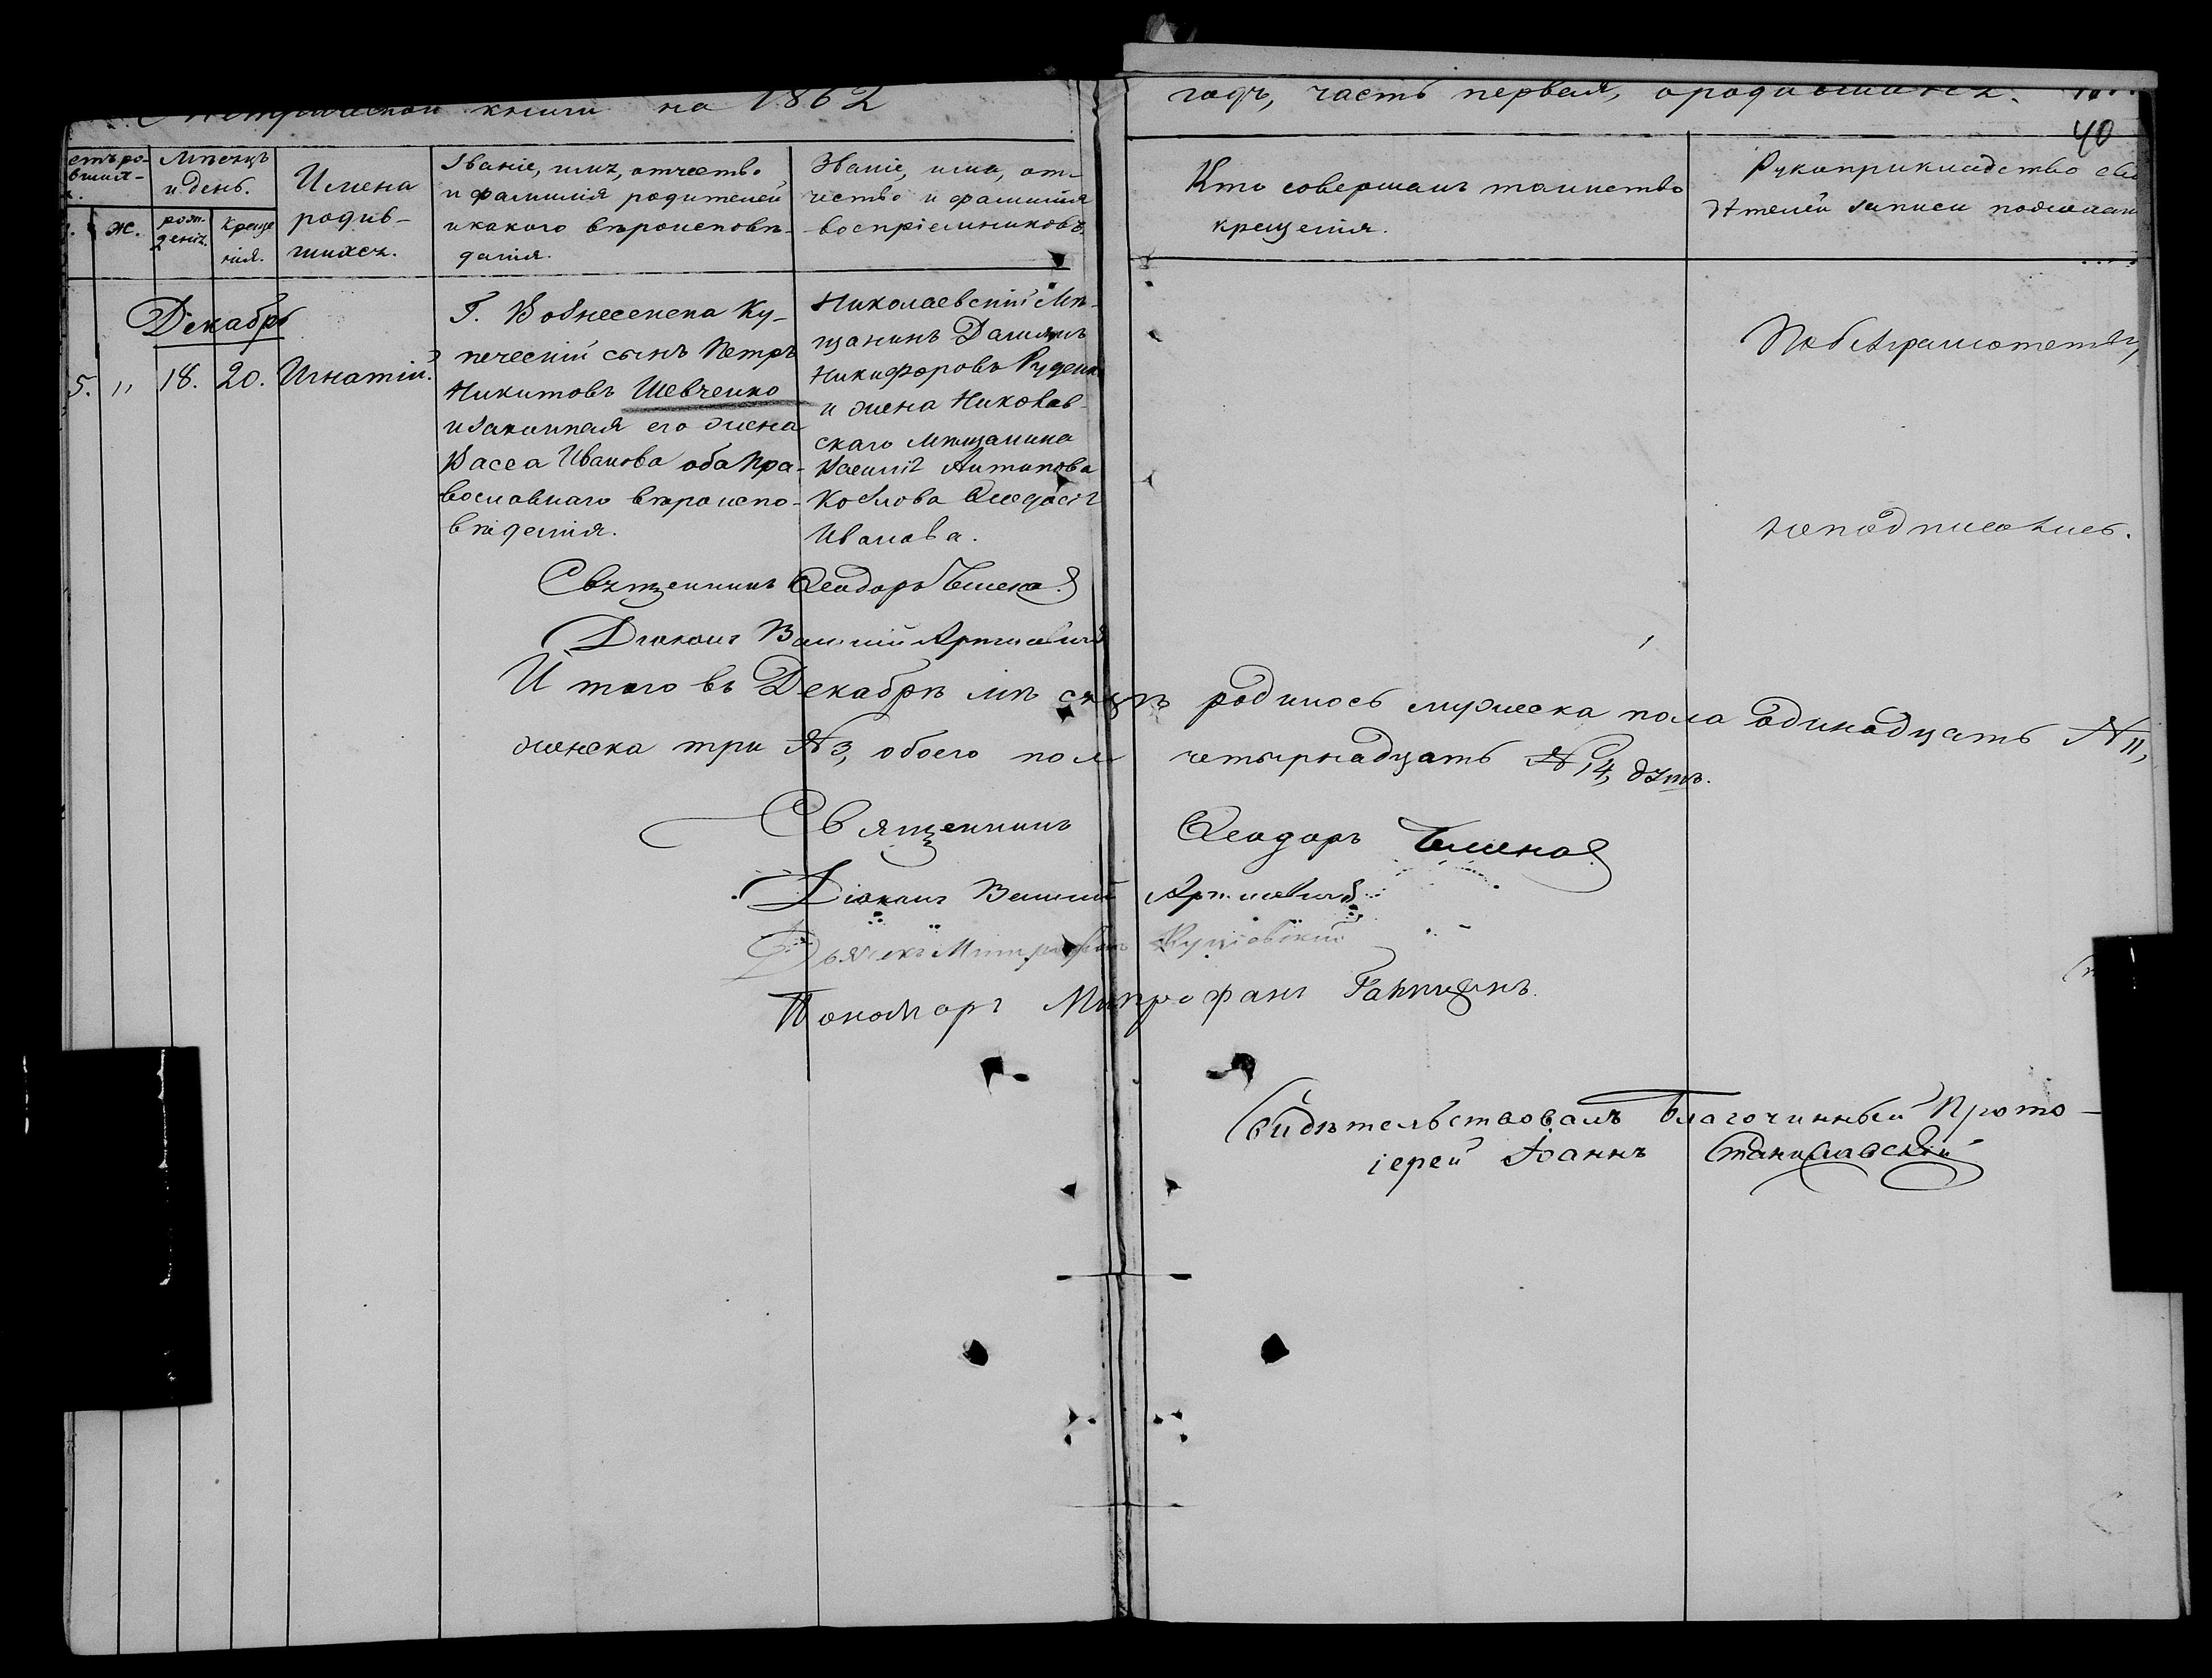 Метрической книги на 1862
годъ, часть первая, о родившихся.
40
Мѣсяцъ
и день.
ж.
рож-
денія.
креще
нія.
Имена
родив-
шихся.
Званіе, имя, отчество
и фамилія родителей
и какого вѣроисповѣ-
данія.
Званіе, имя, от-
чество и фамилія
воспріемниковъ.
Кто совершалъ таинство
крещенія.
Рукоприкладство
записи
Декабрь
5. " 18. 20. Игнатій.
Г. Вознесенска Ку-
печескій сынъ Петръ
Никитовъ Шевченко
и законная его жена
Васса Иванова оба Пра-
вославнаго вѣроиспо-
вѣданія.
Николаевскій Мѣ-
щанинъ Даміянъ
Никифоровъ Руденко
и жена Николаев-
скаго мѣщанина
Василія Антипова
Козлова Ѳеодосія
Иванова.
По безграмотству
неподписались.
Священникъ Ѳеодоръ
Діаконъ Василій
И того въ Декабрѣ мѣсяцѣ родилось мужеска пола одинадцать № 11,
женска три № 3, обоего пола четырнадцать № 14, душъ.
Священникъ Ѳеодоръ
Діаконъ Василій
Дьячекъ Митрофанъ
Пономарь Митрофанъ
Свидѣтельствовалъ Благочинный Прото-
іерей Іоаннъ Станиславскій